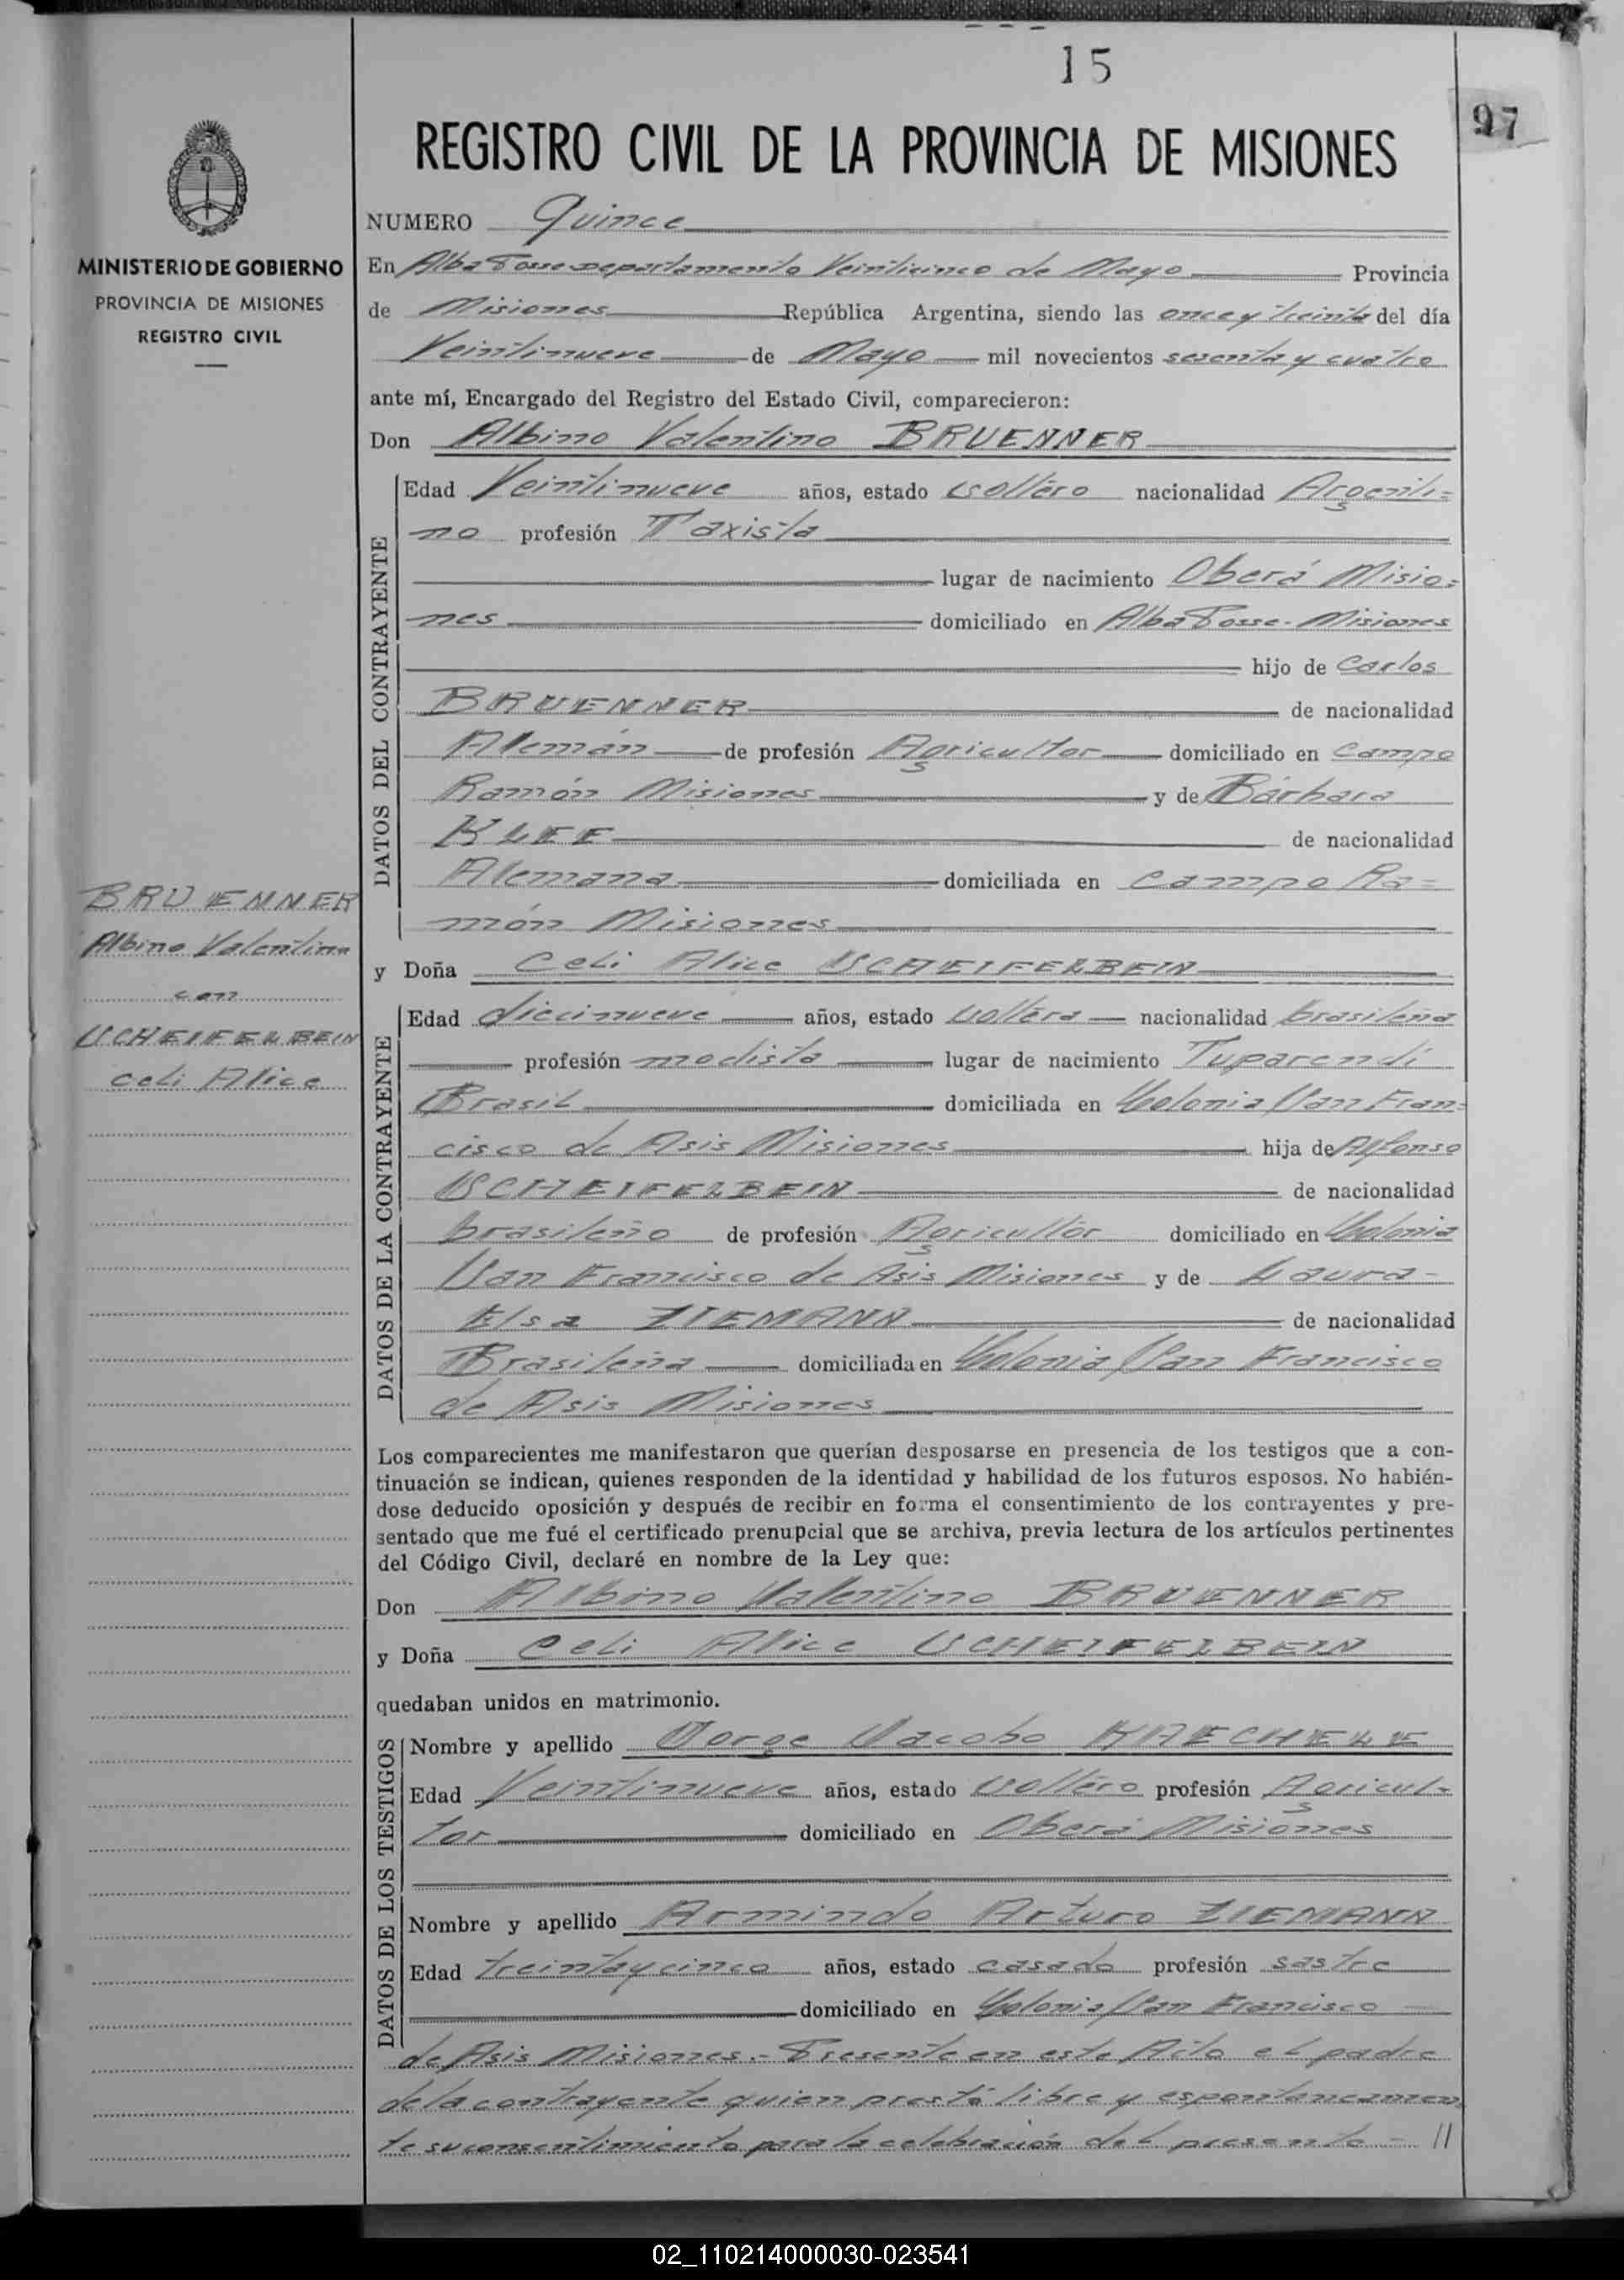 15
97
REGISTRO CIVIL DE LA PROVINCIA DE MISIONES
MINISTERIO DE GOBIERNO
PROVINCIA DE MISIONES
REGISTRO CIVIL
NUMERO Quince
En Alba Posse Departamento Veinticinco de Mayo Provincia
de Misiones República Argentina, siendo las once y treinta del día
Veintinueve de Mayo mil novecientos sesenta y cuatro
ante mí, Encargado del Registro del Estado Civil, comparecieron:
Don Albino Valentino BRUENNER
DATOS DEL CONTRAYENTE
Edad Veintinueve años, estado soltero nacionalidad Argenti=
no profesión Taxista
lugar de nacimiento Oberá Misio=
nes domiciliado en Alba Posse - Misiones
hijo de Carlos
BRUENNER de nacionalidad
Alemán de profesión Agricultor domiciliado en Campo
Ramón Misiones y de Bárbara
KLEE de nacionalidad
Alemana domiciliada en Campo Ra=
món Misiones
BRUENNER
Albino Valentino
con
SCHEIFELBEIN
Celi Alice
y Doña Celi Alice SCHEIFELBEIN
DATOS DE LA CONTRAYENTE
Edad diecinueve años, estado soltera nacionalidad brasileña
profesión modista lugar de nacimiento Tuparendi
Brasil domiciliada en Colonia San Fran=
cisco de Asis Misiones hija de Alfonso
SCHEIFELBEIN de nacionalidad
brasileño de profesión Agricultor domiciliado en Colonia
San Francisco de Asis Misiones y de Laura
Elsa ZIEMANN de nacionalidad
Brasileña domiciliada en Colonia San Francisco
de Asis Misiones
Los comparecientes me manifestaron que querían desposarse en presencia de los testigos que a con-
tinuación se indican, quienes responden de la identidad y habilidad de los futuros esposos. No habién-
dose deducido oposición y después de recibir en forma el consentimiento de los contrayentes y pre-
sentado que me fué el certificado prenupcial que se archiva, previa lectura de los artículos pertinentes
del Código Civil, declaré en nombre de la Ley que:
Don Albino Valentino BRUENNER
y Doña Celi Alice SCHEIFELBEIN
quedaban unidos en matrimonio.
DATOS DE LOS TESTIGOS
Nombre y apellido Jorge Jacobo KAECHELE
Edad Veintinueve años, estado soltero profesión Agricul=
tor domiciliado en Oberá Misiones
Nombre y apellido Armindo Arturo ZIEMANN
Edad treintaycinco años, estado casado profesión sastre
domiciliado en Colonia San Francisco
de Asis Misiones.- Presente en este Acto el padre
de la contrayente quien prestó libre y espontaneamen
te su consentimiento para la celebración del presente - //
02_110214000030-023541